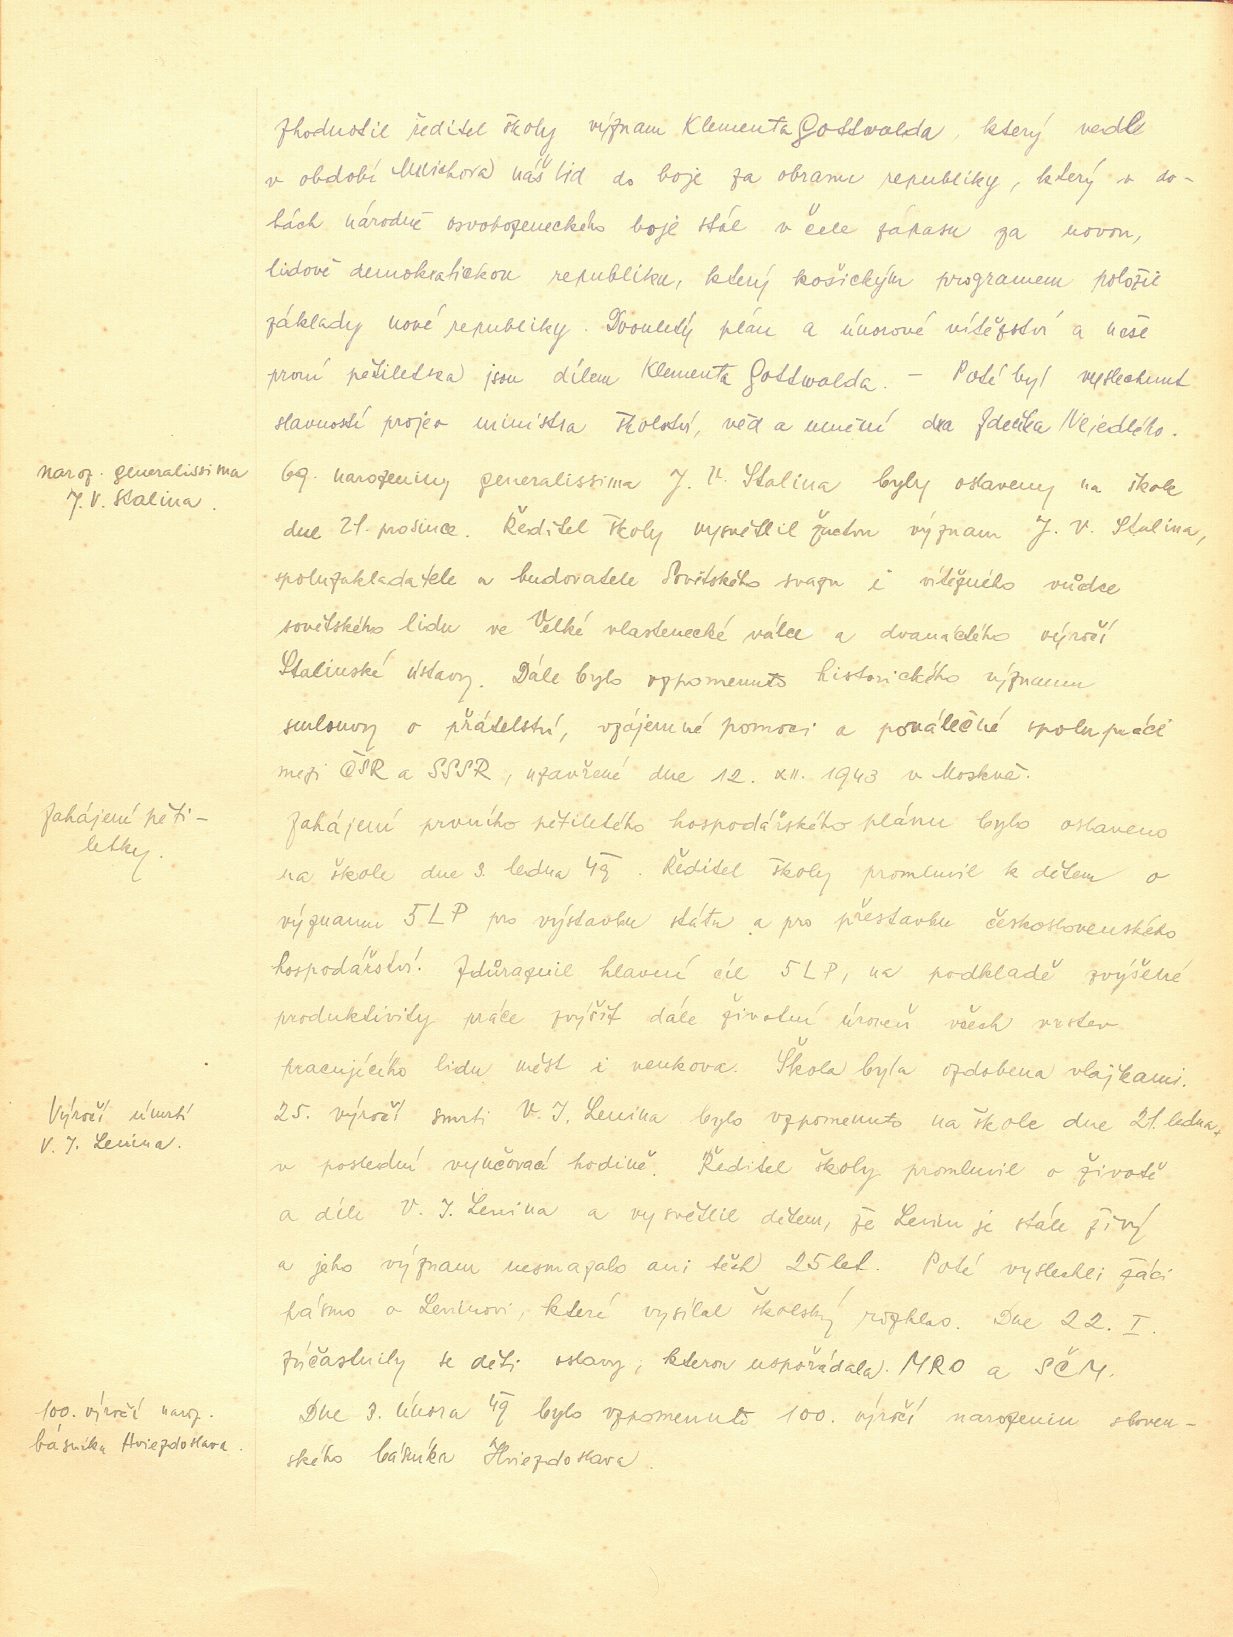 zhodnotil ředitel školy význam Klementa Gottwalda, který vedl
v období Mnichova náš lid do boje za obranu republiky, který v do-
bách národně osvobozeneckého boje stál v čele zápasu za novou,
lidově demokratickou republiku, který košickým programem položil
základy nové republiky. Dvouletý plán a únorové vítězství a naše
první pětiletka jsou dílem Klementa Gottwalda. – Poté byl vyslechnut
slavnostní projev ministra školství, věd a umění dra Zdeňka Nejedlého.
naroz. generalissima
J. V. Stalina.
69. narozeniny generalissima J. V. Stalina byly oslaveny na škole
dne 21. prosince. Ředitel školy vysvětlil žactvu význam J. V. Stalina,
spoluzakladatele a budovatele Sovětského svazu i vítězného vůdce
sovětského lidu ve Velké vlastenecké válce a dvanáctého výročí
Stalinské ústavy. Dále bylo vzpomenuto historického významu
smlouvy o přátelství, vzájemné pomoci a poválečné spolupráci
mezi ČSR a SSSR, uzavřené dne 12. XII. 1943 v Moskvě.
Zahájení pěti-
letky.
Zahájení prvního pětiletého hospodářského plánu bylo oslaveno
na škole dne 3. ledna 49. Ředitel školy promluvil k dětem o
významu 5LP pro výstavbu státu a pro přestavbu československého
hospodářství. Zdůraznil hlavní cíl 5LP, na podkladě zvýšené
produktivity práce zvýšit dále životní úroveň všech vrstev
pracujícího lidu měst i venkova. Škola byla ozdobena vlajkami.
Výročí úmrtí
V. I. Lenina.
25. výročí smrti V. I. Lenina bylo vzpomenuto na škole dne 21. ledna
v poslední vyučovací hodině. Ředitel školy promluvil o životě
a díle V. I. Lenina a vysvětlil dětem, že Lenin je stále živý
a jeho význam nesmazalo ani těch 25 let. Poté vyslechli žáci
pásmo o Leninovi, které vysílal školský rozhlas. Dne 22. I.
zúčastnily se děti oslavy, kterou uspořádala MRO a SČM.
100. výročí naroz.
básníka Hviezdoslava.
Dne 3. února 49 bylo vzpomenuto 100. výročí narozenin sloven-
ského básníka Hviezdoslava.